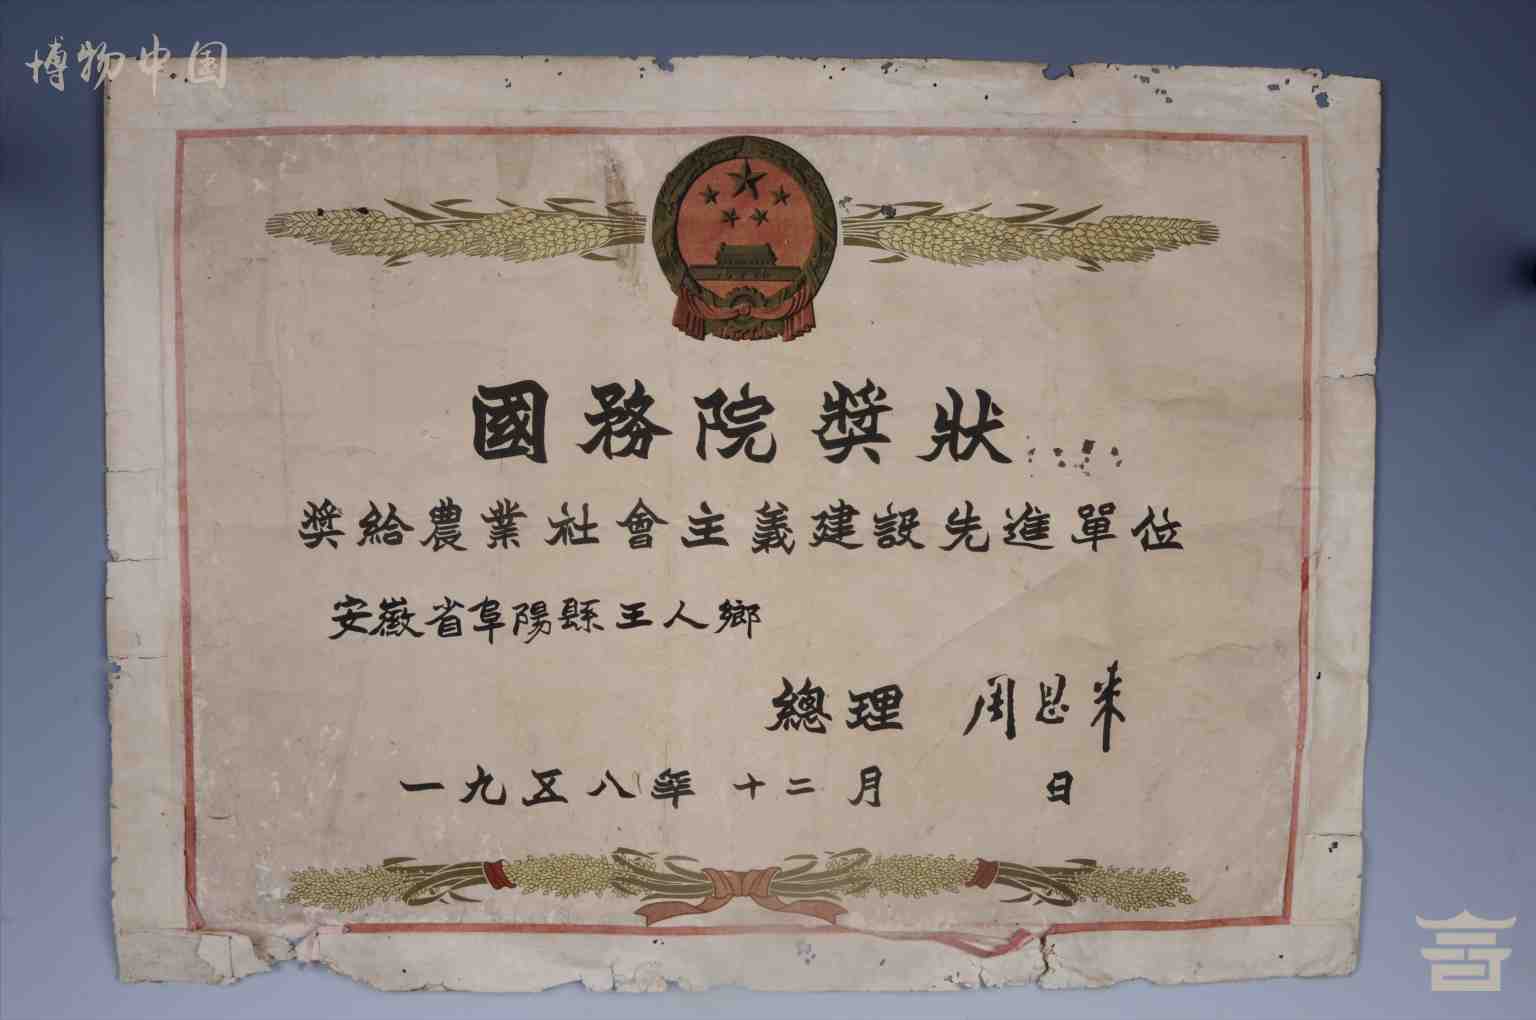 博物中国
國務院獎狀
獎給農業社會主義建設先進單位
安徽省阜陽縣王人鄉
總理 周恩来
一九五八年十二月 日